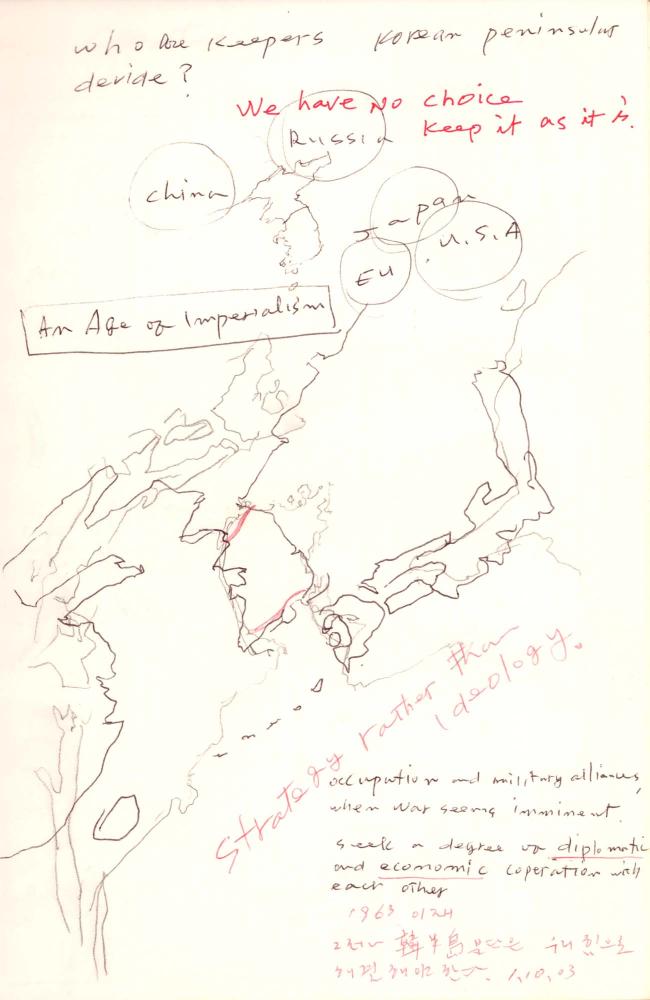 who are keepers korean peninsular
devide?
We have No choice
keep it as it is.
Russia
china
Japan
U.S.A
EU
An Age of Imperialism
Strategy rather than
Ideology.
occupation and military alliances,
when war seems imminent.
seek a degree of diplomatic
and economic coperation with
each other
1963 이재
그러나 韓半島 분단은 우리 힘으로
해결해야 한다. 1,10,03